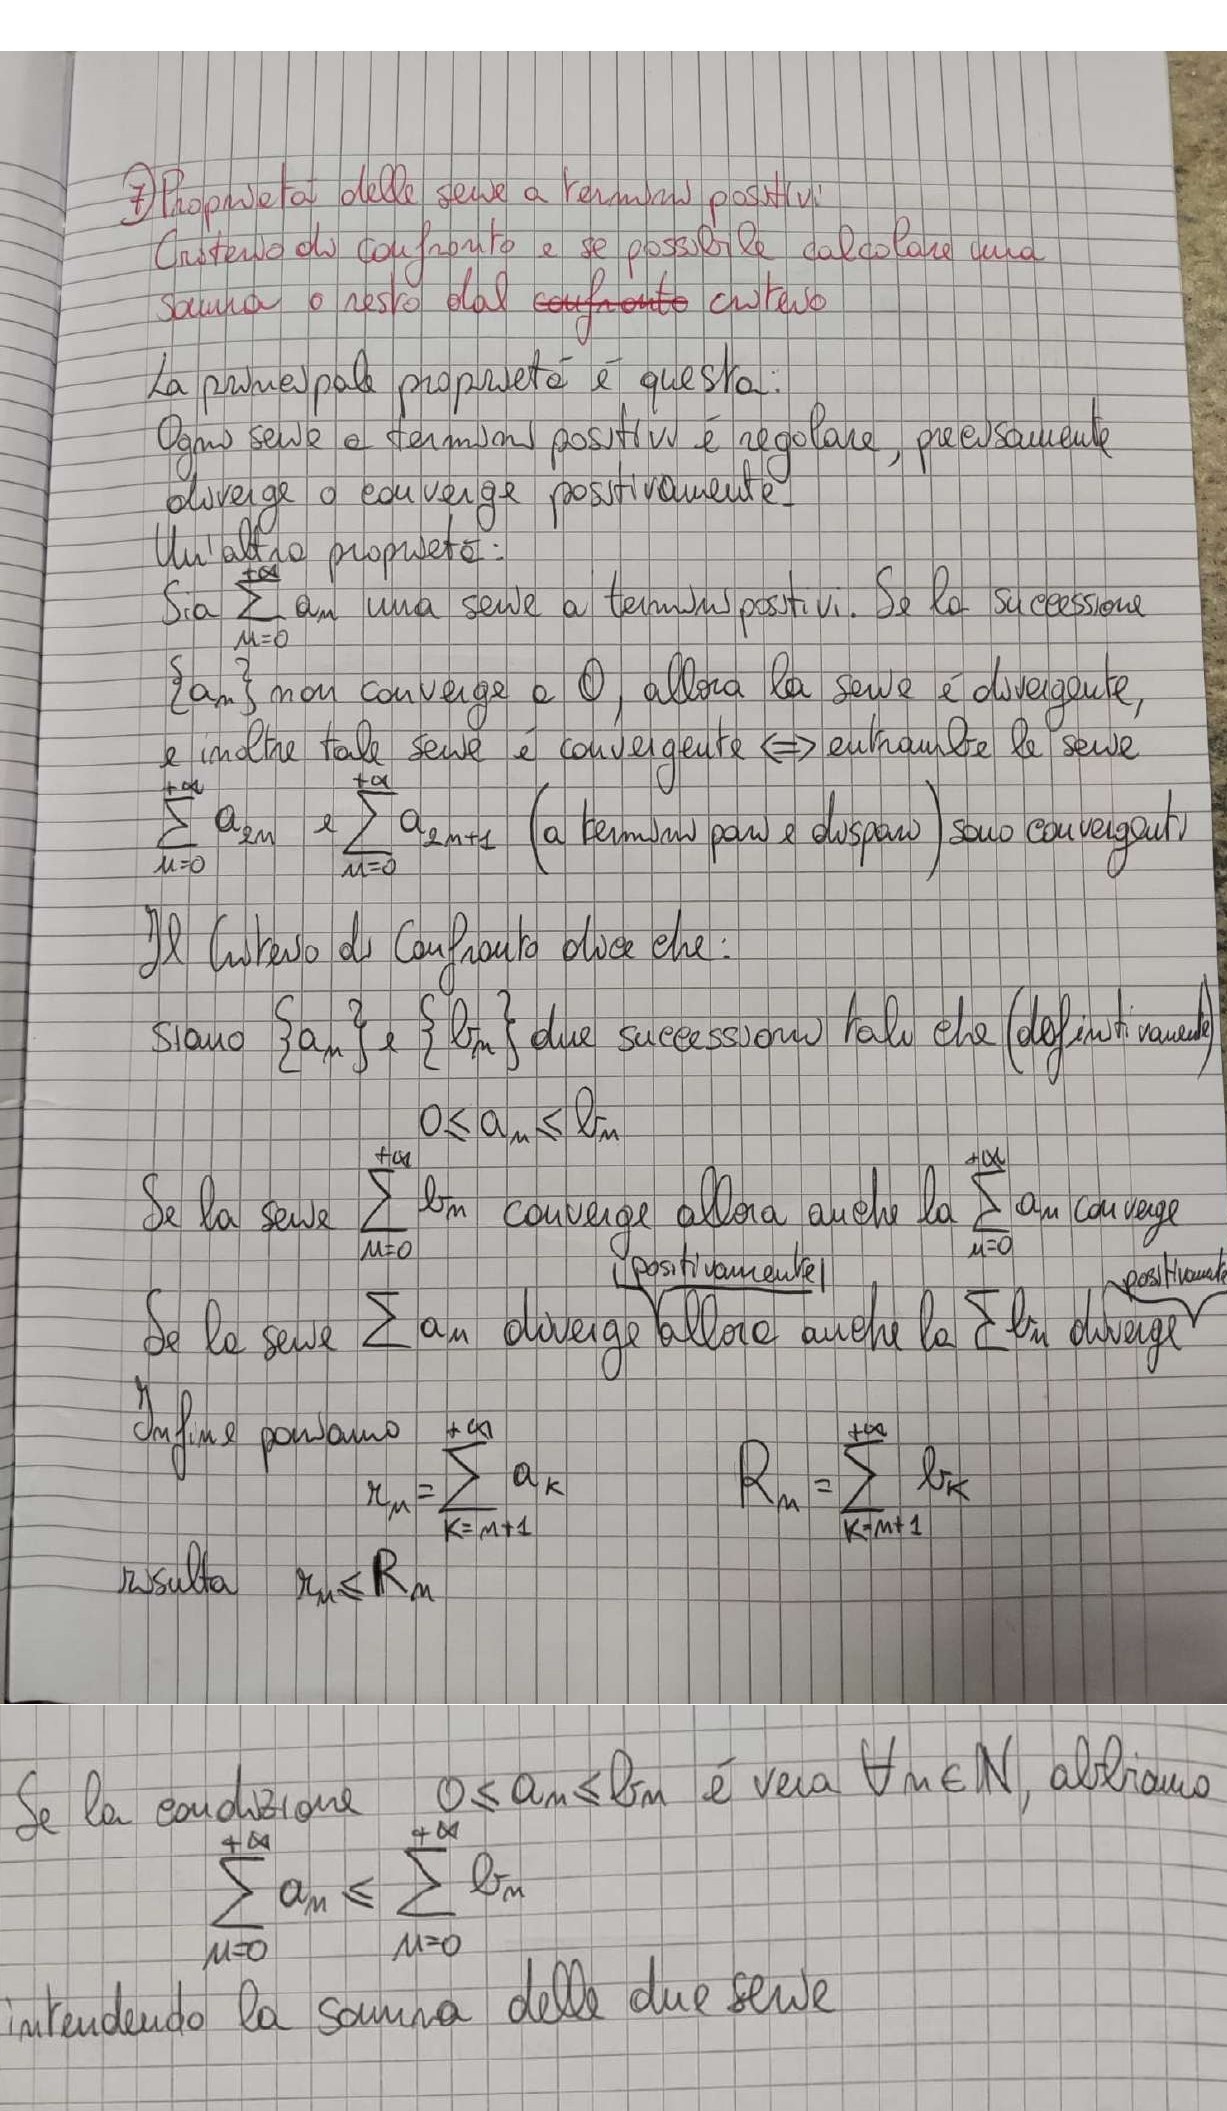 7) Proprietà delle serie a termini positivi
Criterio di confronto e se possibile calcolare una
somma o resto dal confronto criterio
La principale proprietà è questa:
Ogni serie a termini positivi è regolare, precisamente
diverge o converge positivamente.
Un'altra proprietà:
Sia \sum_{n=0}^{+∞} a_n una serie a termini positivi. Se la successione
{a_n} non converge a 0, allora la serie è divergente,
e inoltre tale serie è convergente <=> entrambe le serie
\sum_{n=0}^{+∞} a_{2n} e \sum_{n=0}^{+∞} a_{2n+1} (a termini pari e dispari) sono convergenti
Il Criterio di Confronto dice che:
siano {a_n} e {b_n} due successioni tali che (definitivamente)
0 ≤ a_n ≤ b_n
Se la serie \sum_{n=0}^{+∞} b_n converge allora anche la \sum_{n=0}^{+∞} a_n converge
positivamente positivamente
Se la serie \sum a_n diverge allora anche la \sum b_n diverge
Infine poniamo
r_n = \sum_{k=n+1}^{+∞} a_k R_n = \sum_{k=n+1}^{+∞} b_k
risulta r_n ≤ R_n
Se la condizione 0 ≤ a_n ≤ b_n è vera ∀n∈N, abbiamo
\sum_{n=0}^{+∞} a_n ≤ \sum_{n=0}^{+∞} b_n
intendendo la somma delle due serie